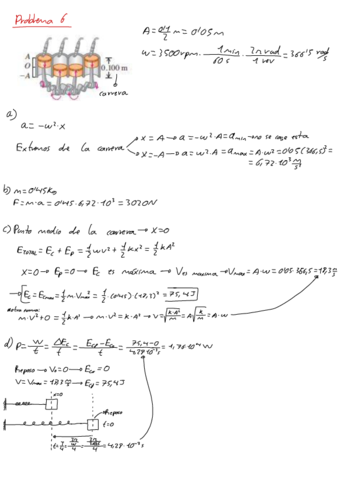 Problema 6
A = 0'1/2 m = 0'05 m
A
O
-A
0.100 m
carrera
w = 3500 rpm · 1 min/60 s · 2π rad/1 rev = 366'5 rad/s
a)
a = -w²·x
Extremos de la carrera
x = A → a = -w²·A = amin → no se coge esta
x = -A → a = w²·A = amax = A·w² = 0'05·(366,5)² =
= 6,72·10³ m/s²
b) m = 0'45 kg
F = m·a = 0'45·6,72·10³ = 3020 N
c) Punto medio de la carrera → x = 0
ETOTAL = Ec + Ep = 1/2 mv² + 1/2 kx² = 1/2 kA²
x = 0 → Ep = 0 → Ec es máxima → V es maxima → Vmax = A·w = 0'05·366,5 = 18,3 m/s
→ Ec = Ecmax = 1/2 m·Vmax² = 1/2 · (0'45) · (18,3)² = 75,4 J
m·V² + 0 = 1/2 k·A² → m·V² = k·A² → V = √(k·A²/m) = A·√(k/m) = A·w
d) P = W/t = ΔEc/t = (Ecf - Eco)/t = (75,4 - 0)/(4,29·10⁻³) = 1,76·10⁴ W
Reposo → Vo = 0 → Eco = 0
V = Vmax = 18'3 m/s → Ecf = 75,4 J
x=0
Reposo
t=0
= 4,29·10⁻³ s